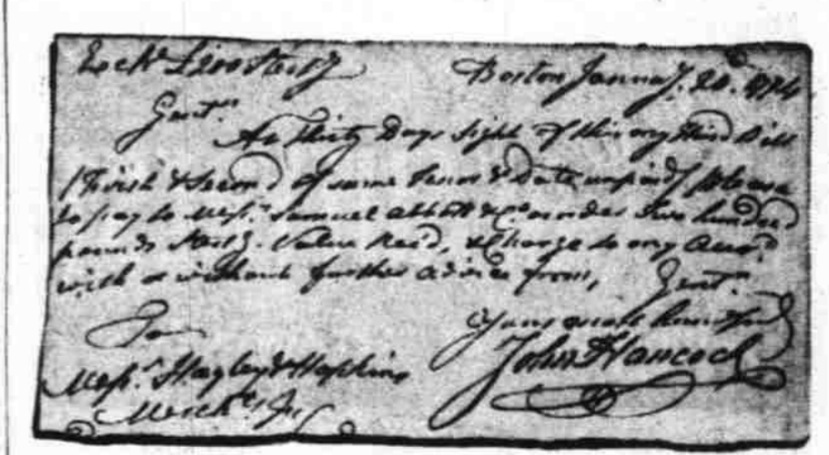 Exch. £200 Sterg Boston Jannay. 20.d 1774
Gent.n
At Thirty Days sight of this my third Bill
(First & Second of same Tenor & Date unpaid) please
to pay to Mess.rs Samuel Abbott & Co. or order Two hundred
pounds Sterg. Value Recd, & Charge to my Acco.t
with or without further advice from, Gent.n
Your most hum
To John Hancock
Mess.rs Hayley & Hopkins
Merch.ts